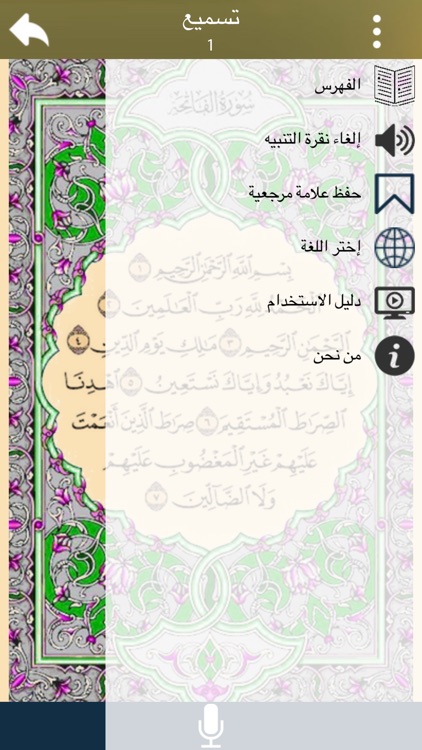 تسميع
1
الفهرس
إلغاء نقرة التنبيه
حفظ علامة مرجعية
إختر اللغة
دليل الاستخدام
من نحن
سُورَةُ الفَاتِحَةِ
بِسْمِ ٱللَّهِ ٱلرَّحْمَٰنِ ٱلرَّحِيمِ ١
ٱلْحَمْدُ لِلَّهِ رَبِّ ٱلْعَٰلَمِينَ ٢
ٱلرَّحْمَٰنِ ٱلرَّحِيمِ ٣ مَٰلِكِ يَوْمِ ٱلدِّينِ ٤
إِيَّاكَ نَعْبُدُ وَإِيَّاكَ نَسْتَعِينُ ٥ ٱهْدِنَا
ٱلصِّرَٰطَ ٱلْمُسْتَقِيمَ ٦ صِرَٰطَ ٱلَّذِينَ أَنْعَمْتَ
عَلَيْهِمْ غَيْرِ ٱلْمَغْضُوبِ عَلَيْهِمْ
وَلَا ٱلضَّآلِّينَ ٧